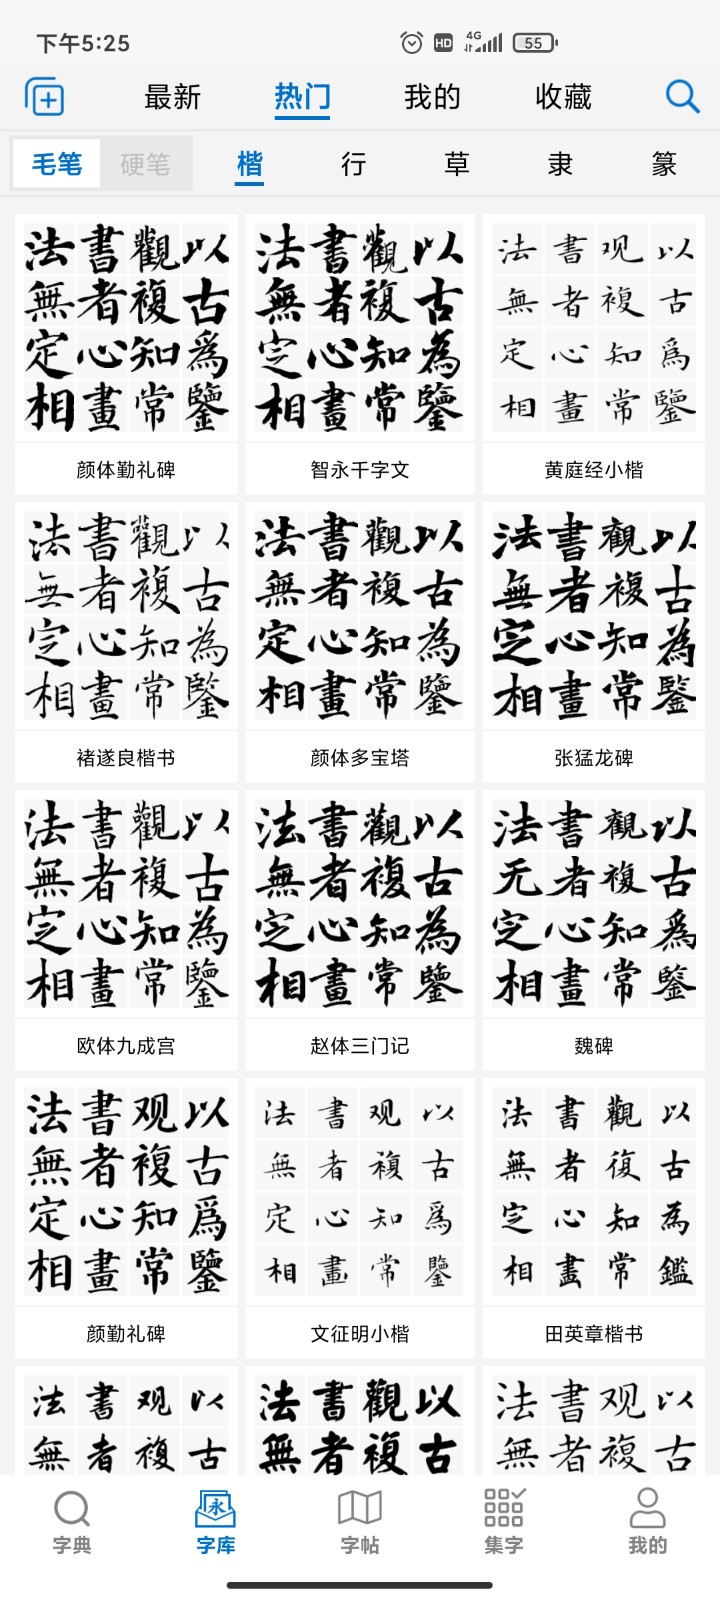 下午5:25
HD 4G 55
最新 热门 我的 收藏
毛笔 硬笔 楷 行 草 隶 篆
法書觀以
無者複古
定心知爲
相畫常鑒
颜体勤礼碑
法書觀以
無者複古
定心知為
相畫常鑒
智永千字文
法書观以
無者複古
定心知爲
相畫常鑒
黄庭经小楷
法書觀以
無者複古
定心知為
相畫常鋻
褚遂良楷书
法書觀以
無者複古
定心知為
相畫常鑒
颜体多宝塔
法書觀以
無者複古
定心知為
相畫常鋻
张猛龙碑
法書觀以
無者複古
定心知為
相畫常鑒
欧体九成宫
法書觀以
無者複古
定心知為
相畫常鑒
赵体三门记
法書觀以
无者複古
定心知爲
相畫常鋻
魏碑
法書观以
無者複古
定心知爲
相畫常鑒
颜勤礼碑
法書观以
無者複古
定心知爲
相畫常鑒
文征明小楷
法書觀以
無者復古
定心知為
相畫常鑑
田英章楷书
法書观以
無者複古
法書觀以
無者複古
法書观以
無者複古
字典 永 字库 字帖 集字 我的